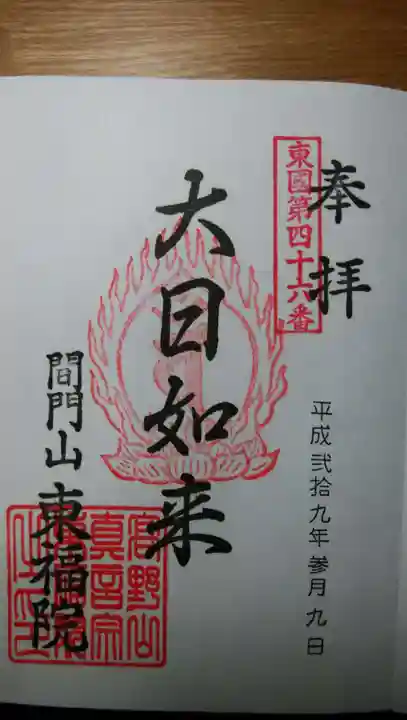 奉拝
東國第四十六番
平成弐拾九年参月九日
大日如来
間門山東福院
高野山
真言宗